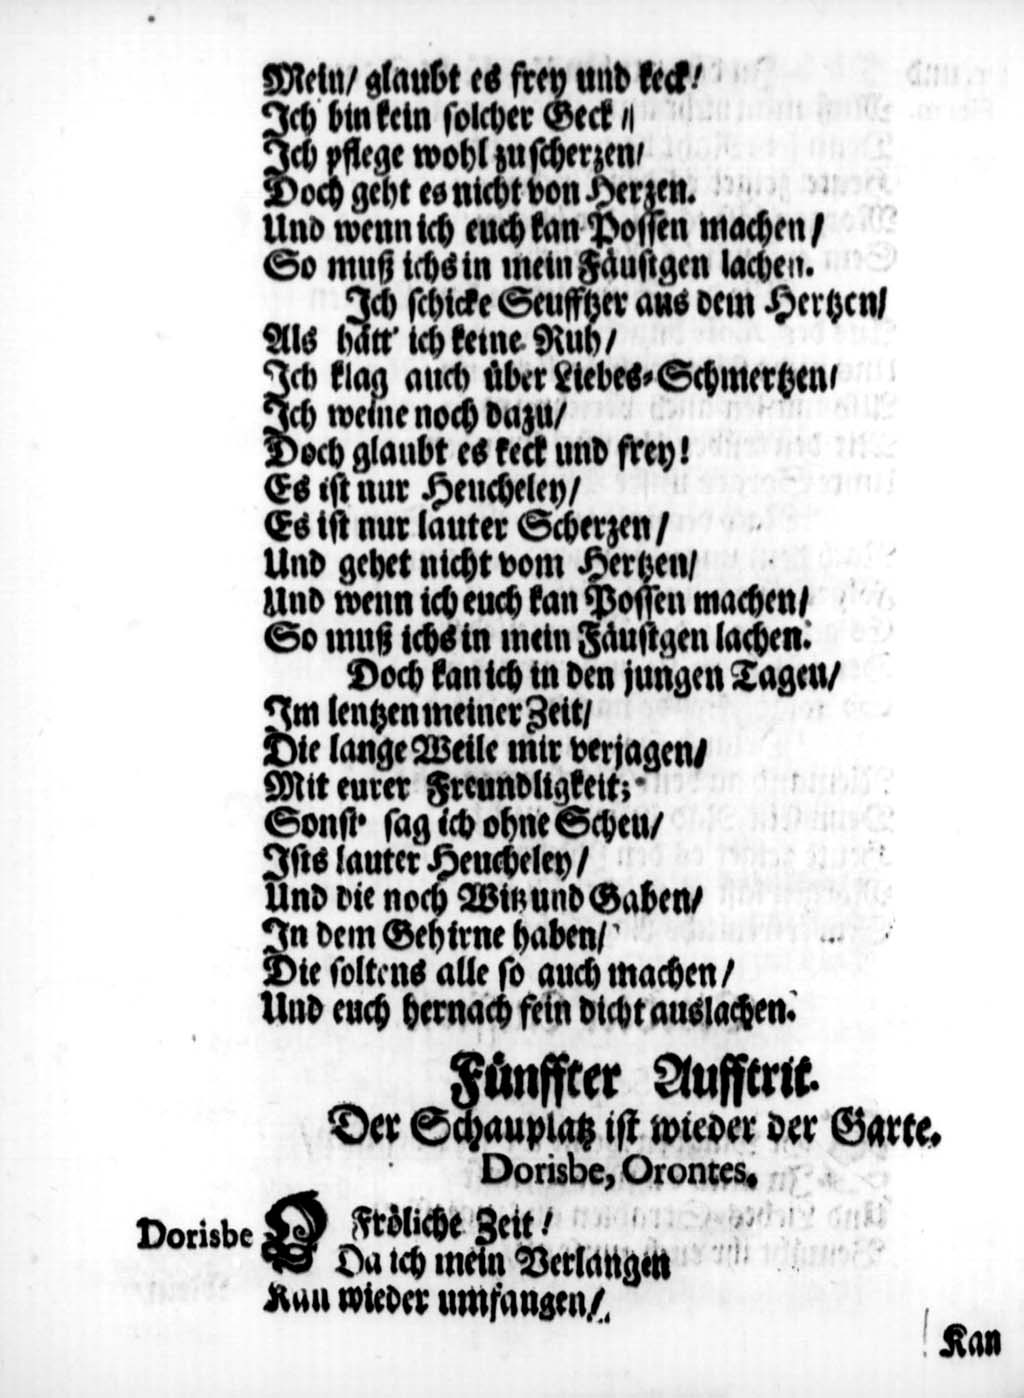 Mein/ glaubt es frey und keck!
Ich bin kein solcher Geck /
Ich pflege wohl zu scherzen/
Doch geht es nicht von Herzen.
Und wenn ich euch kan Possen machen/
So muß ichs in mein Fäustgen lachen.
Ich schicke Seufftzer aus dem Hertzen/
Als hätt' ich keine Ruh/
Ich klag auch über Liebes-Schmertzen/
Ich weine noch dazu/
Doch glaubt es keck und frey!
Es ist nur Heucheley/
Es ist nur lauter Scherzen/
Und gehet nicht vom Hertzen/
Und wenn ich euch kan Possen machen/
So muß ichs in mein Fäustgen lachen.
Doch kan ich in den jungen Tagen/
Im lentzen meiner Zeit/
Die lange Weile mir verjagen/
Mit eurer Freundligkeit;
Sonst sag ich ohne Scheu/
Ists lauter Heucheley/
Und die noch Witz und Gaben/
In dem Gehirne haben/
Die soltens alle so auch machen/
Und euch hernach fein dicht auslachen.
Fünffter Aufftrit.
Der Schauplatz ist wieder der Garte.
Dorisbe, Orontes.
Dorisbe O Fröliche Zeit!
Da ich mein Verlangen
Kan wieder umfangen/
Kan